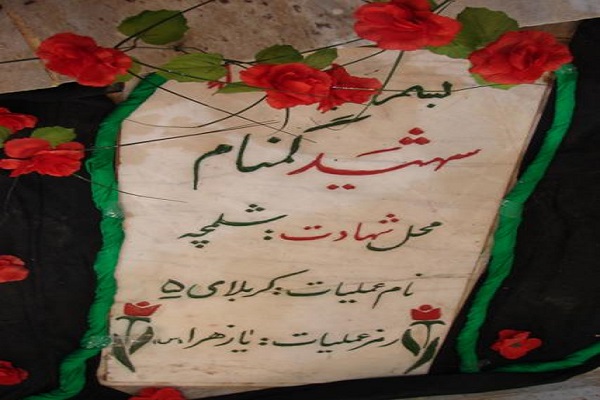 بسمه
شهید گمنام
محل شهادت: شلمچه
نام عملیات: کربلای ۵
رمز عملیات: یا زهرا (س)